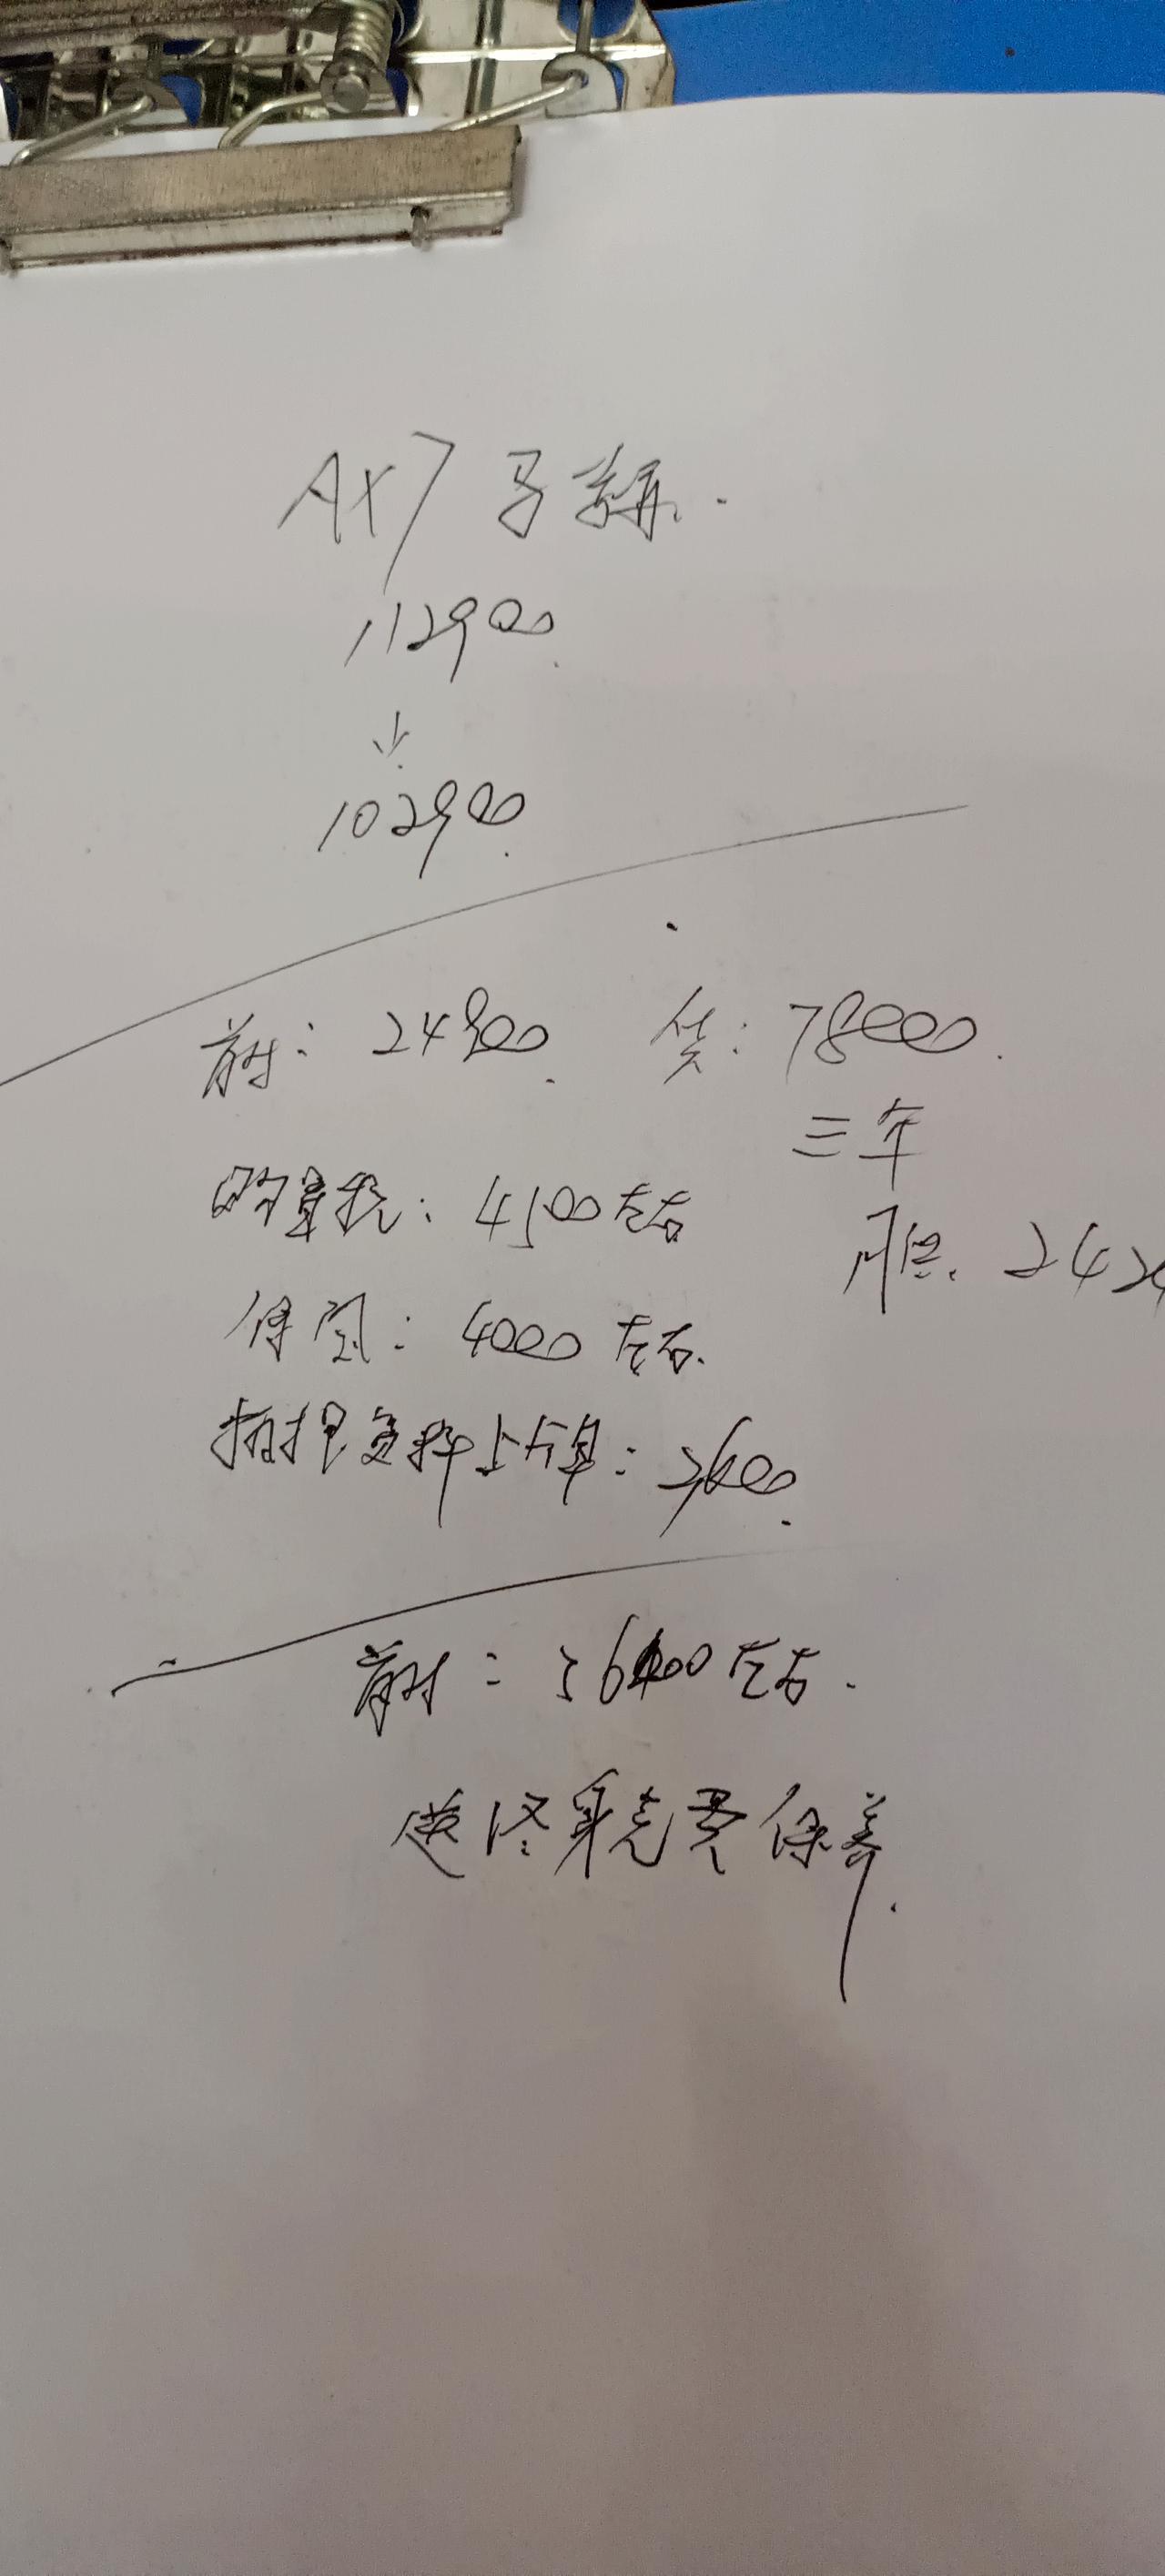 AX7 马赫.
112900.
↓
102900.
首付: 24900. 贷: 78000.
三年
购置税: 4500左右
月供. 242
保险: 4000左右.
抵押资料上牌: 3600.
首付: 36400左右.
送终身免费保养.